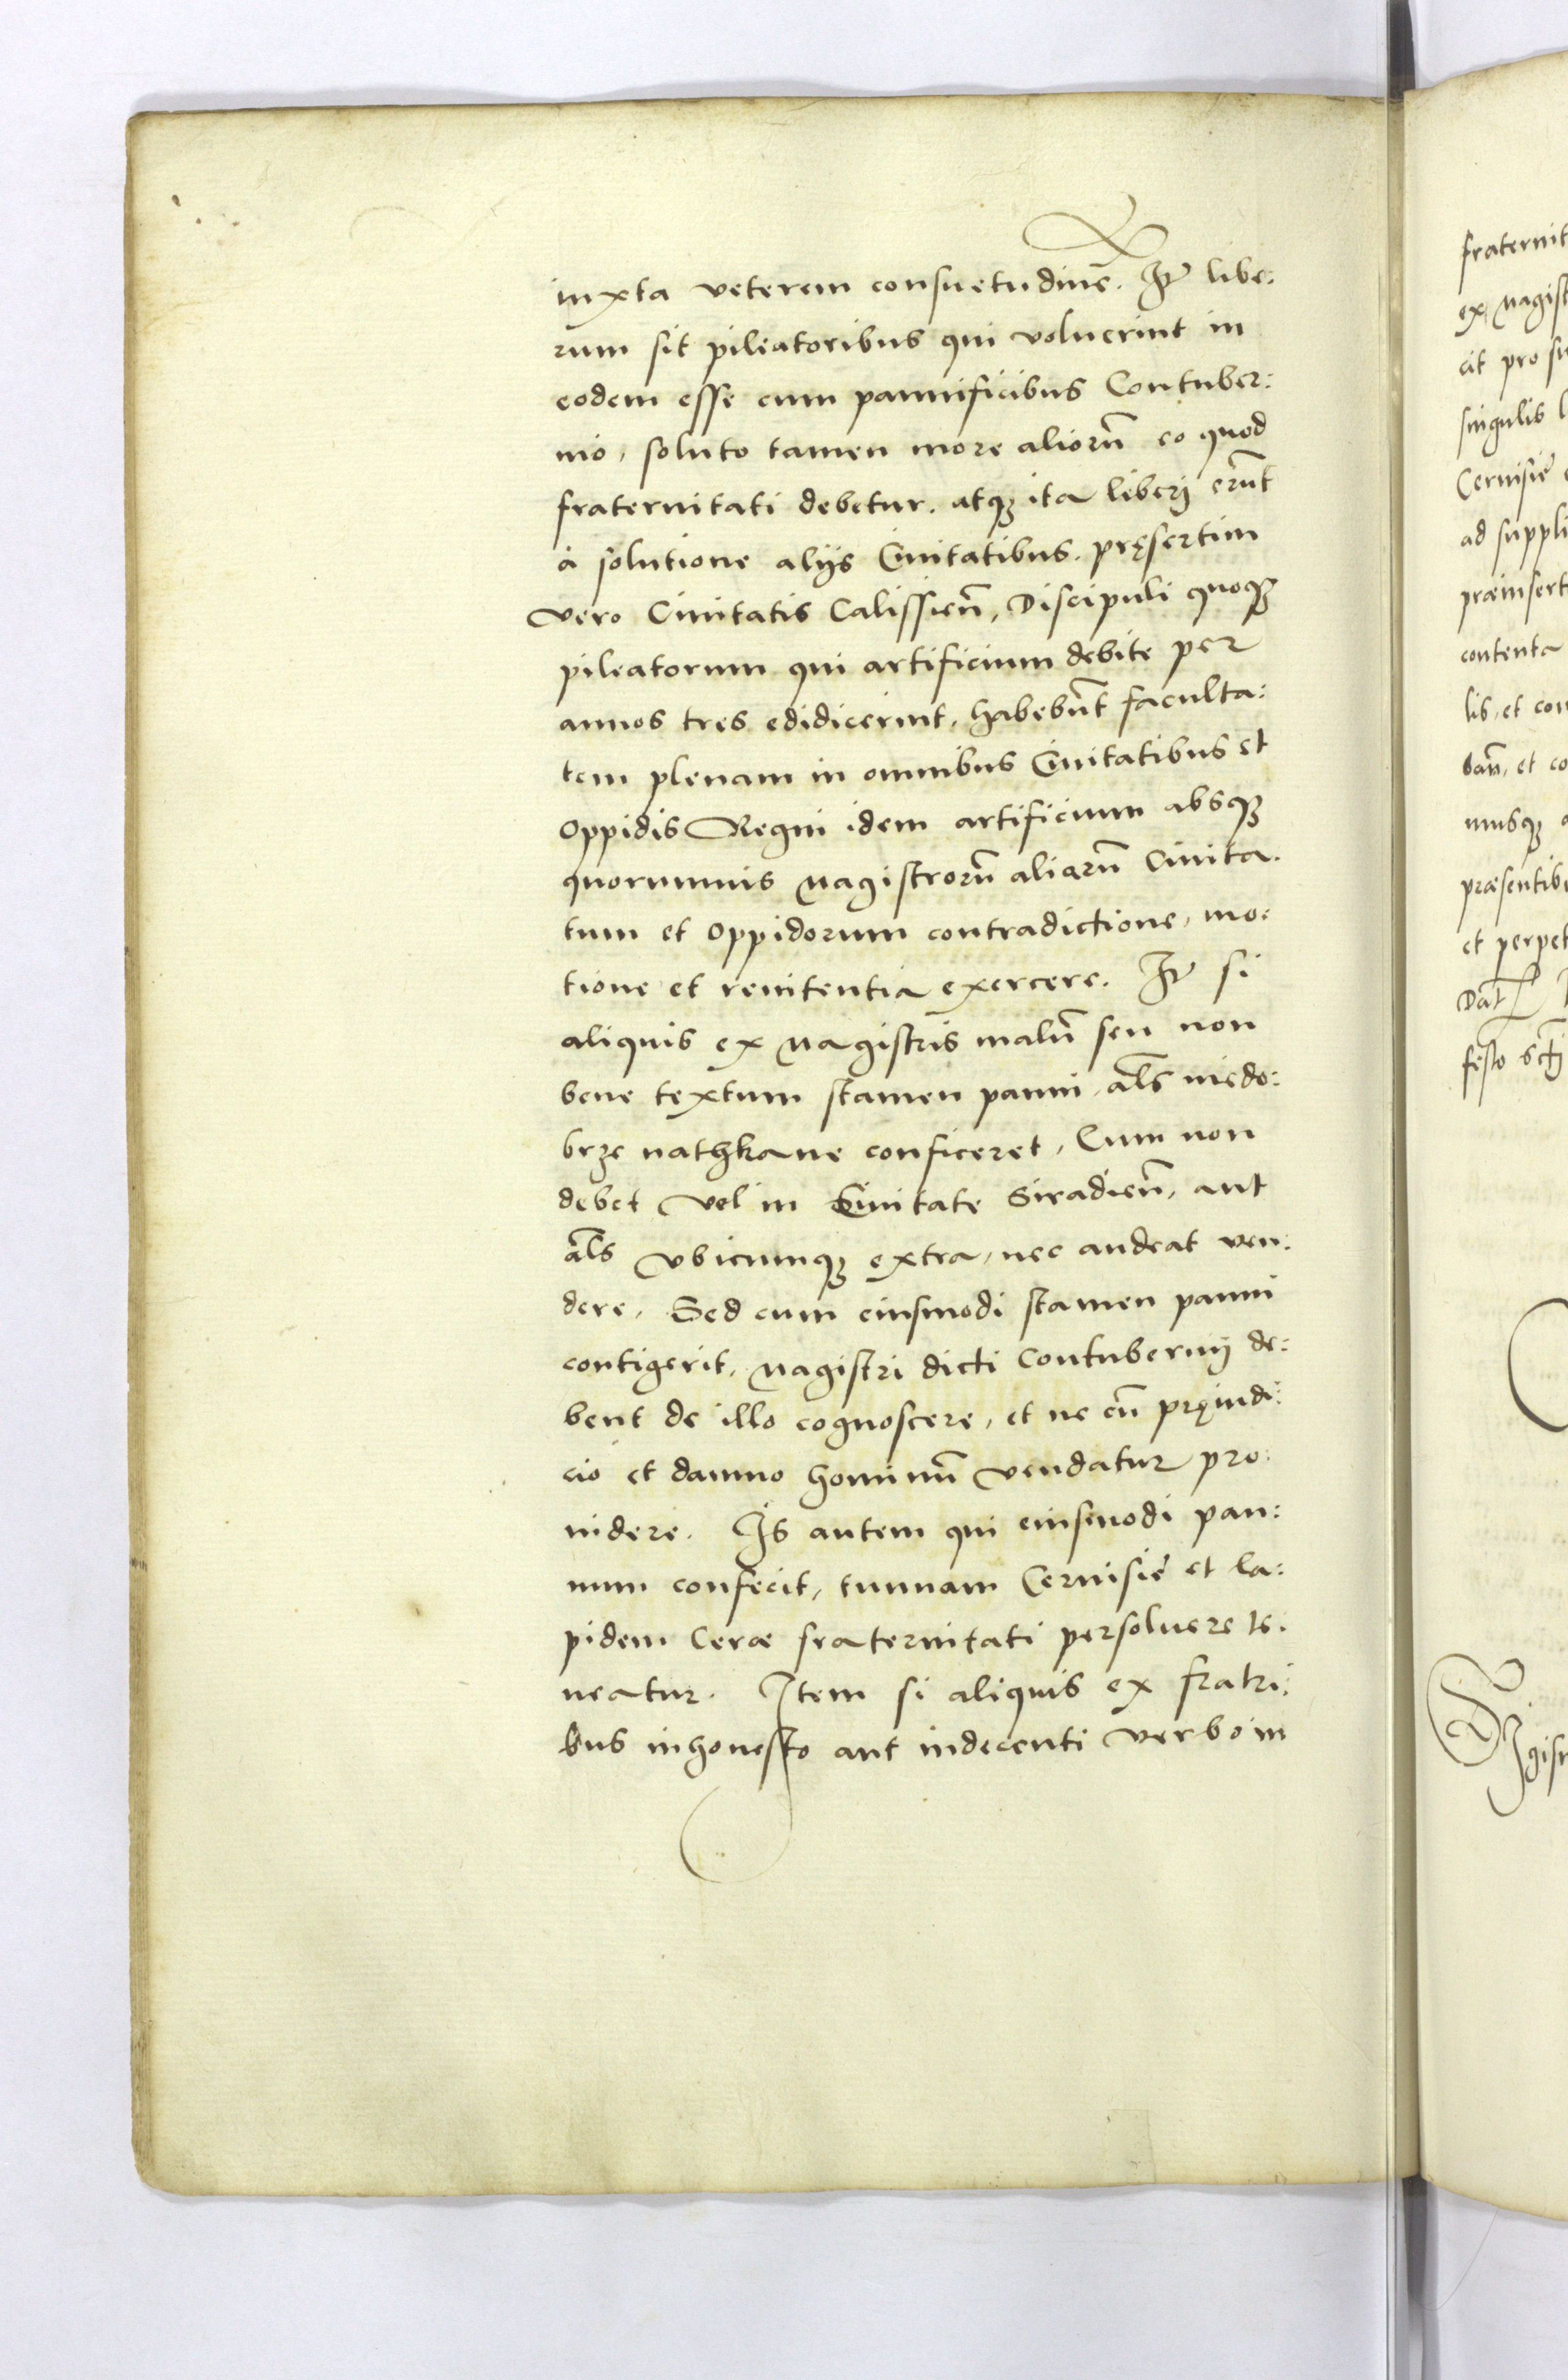 iuxta veterem consuetudinē. Itē libe:
rum sit pileatoribus qui voluerint in
eodem esse cum pannificibus Contuber:
nio, soluto tamen more aliorū eo quod
fraternitati debetur. atq3 ita liberj erūt
à solutione alijs Ciuitatibus. pręsertim
vero Ciuitatis Calissień, Discipuli quoq3
pileatorum qui artificium debite per
annos tres edidicerint, habebūt faculta:
tem plenam in omnibus Ciuitatibus et
Oppidis Regni idem artificium absq3
quorumuis Magistrorū aliarū Ciuita.
tum et Oppidorum contradictione, mo:
tione et renitentia exercere. Itē si
aliquis ex Magistris malū seu non
bene textum stamen panni, als niedo:
brze nathkane conficeret, Eum non
debet vel in Ciuitate Siradień, aut
als vbicumq3 extra, nec audeat ven:
dere. Sed cum eiusmodi stamen panni
contigerit, Magistri dicti Contubernij de:
bent de illo cognoscere, et ne cū pręiudi:
cio et damno hominū vendatur pro:
uidere. Is autem qui eiusmodi pan:
num confecit, tunnam Ceruisię et la:
pidem Cerae fraternitati persoluere te:
neatur. Item si aliquis ex fratri:
bus inhonesto aut indecenti verbo in
fraternit
ex Magist
cit pro su
singulis l
Ceruisię
ad suppli
praeinsert
contenta
lis, et con
bań, et co
musq3
praesentibu
et perpet
Dat
festo sctj
Sigism